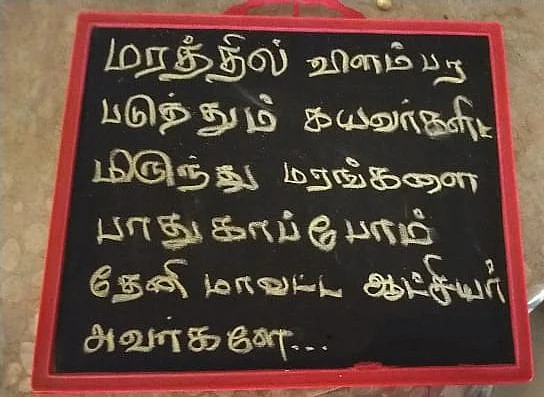 மரத்தில் விளம்பர
படுத்தும் கயவர்களிட
மிருந்து மரங்களை
பாதுகாப்போம்
தேனி மாவட்ட ஆட்சியர்
அவர்களே...